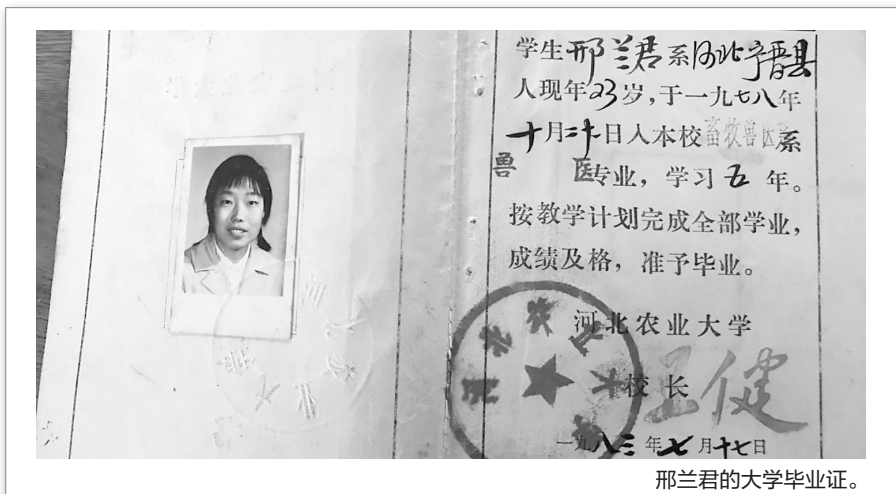 学生邢兰君系河北宁晋县
人现年23岁，于一九七八年
十月二十日入本校畜牧兽医系
兽医专业，学习五年。
按教学计划完成全部学业，
成绩及格，准予毕业。
河北农业大学
校长 王健
一九八三年七月十七日
邢兰君的大学毕业证。